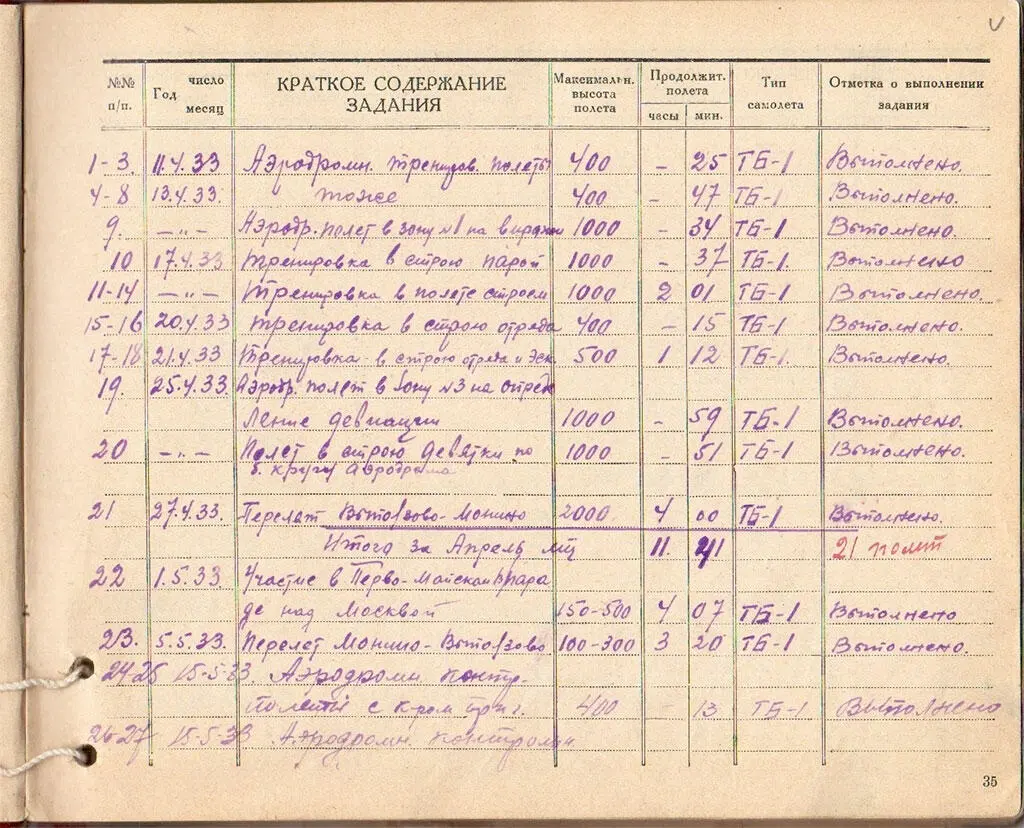 №№ п/п. Год число месяц КРАТКОЕ СОДЕРЖАНИЕ ЗАДАНИЯ Максимальн. высота полета Продолжит. полета часы мин. Тип самолета Отметка о выполнении задания
1-3. 11.4.33 Аэродромн. трениров. полеты 400 - 25 ТБ-1 Выполнено.
4-8 13.4.33. тоже 400 - 47 ТБ-1 Выполнено.
9. —"— Аэродр. полет в зону №1 на виражи 1000 - 34 ТБ-1 Выполнено.
10 17.4.33 тренировка в строю парой 1000 - 37 ТБ-1. Выполнено
11-14 —"— Тренировка в полете строем 1000 2 01 ТБ-1 Выполнено.
15-16 20.4.33 тренировка в строю отряда 400 - 15 ТБ-1 Выполнено.
17-18 21.4.33 Тренировка в строю отряда и Эск 500 1 12 ТБ-1. Выполнено.
19. 25.4.33. Аэродр. полет в Зону №3 на опреде
ление девиации 1000 - 59 ТБ-1 Выполнено.
20 —"— Полет в строю девятки по 1000 - 51 ТБ-1 Выполнено.
б. кругу аэродрома
21 27.4.33. Перелат Выползово-Монино 2000 4 00 ТБ-1 Выполнено.
Итого за Апрель м-ц 11 41 21 полет
22 1.5.33. Участие в Перво-Майском пара
де над Москвой 150-500 4 07 ТБ-1 Выполнено
23. 5.5.33. Перелет Монино-Выползово 100-300 3 20 ТБ-1 Выполнено.
24-25 15-5-33. Аэродромн. контр.
полеты с 400 13 ТБ-1 Выполнено
26-27 15-5-33 Аэродромн.
35